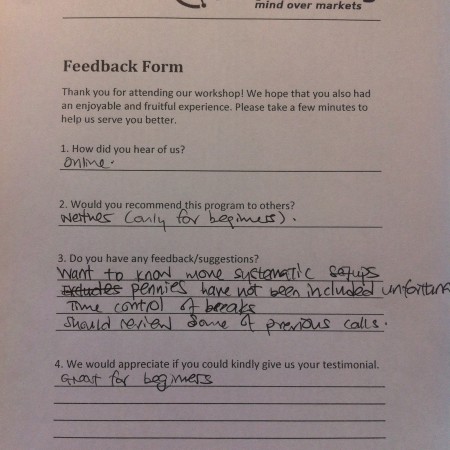 mind over markets
Feedback Form
Thank you for attending our workshop! We hope that you also had
an enjoyable and fruitful experience. Please take a few minutes to
help us serve you better.
1. How did you hear of us?
Online.
2. Would you recommend this program to others?
Neither (only for beginners).
3. Do you have any feedback/suggestions?
Want to know more systematic setups
pennies have not been included unfortun
Time control of breaks
Should review some of previous calls.
4. We would appreciate if you could kindly give us your testimonial.
Great for beginners